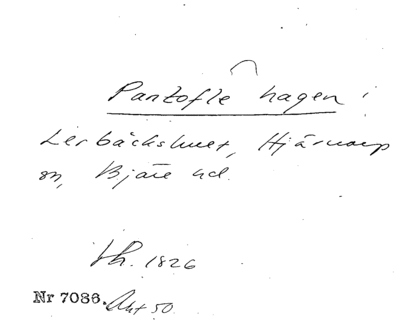 Pantofle hagen i
Lerbäckshult, Hjärnarp
sn, Bjäre hd.
Lh. 1826
Nr 7086. Akt 50